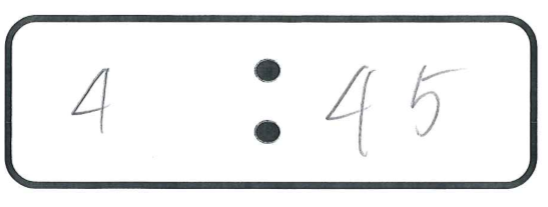 4 : 45